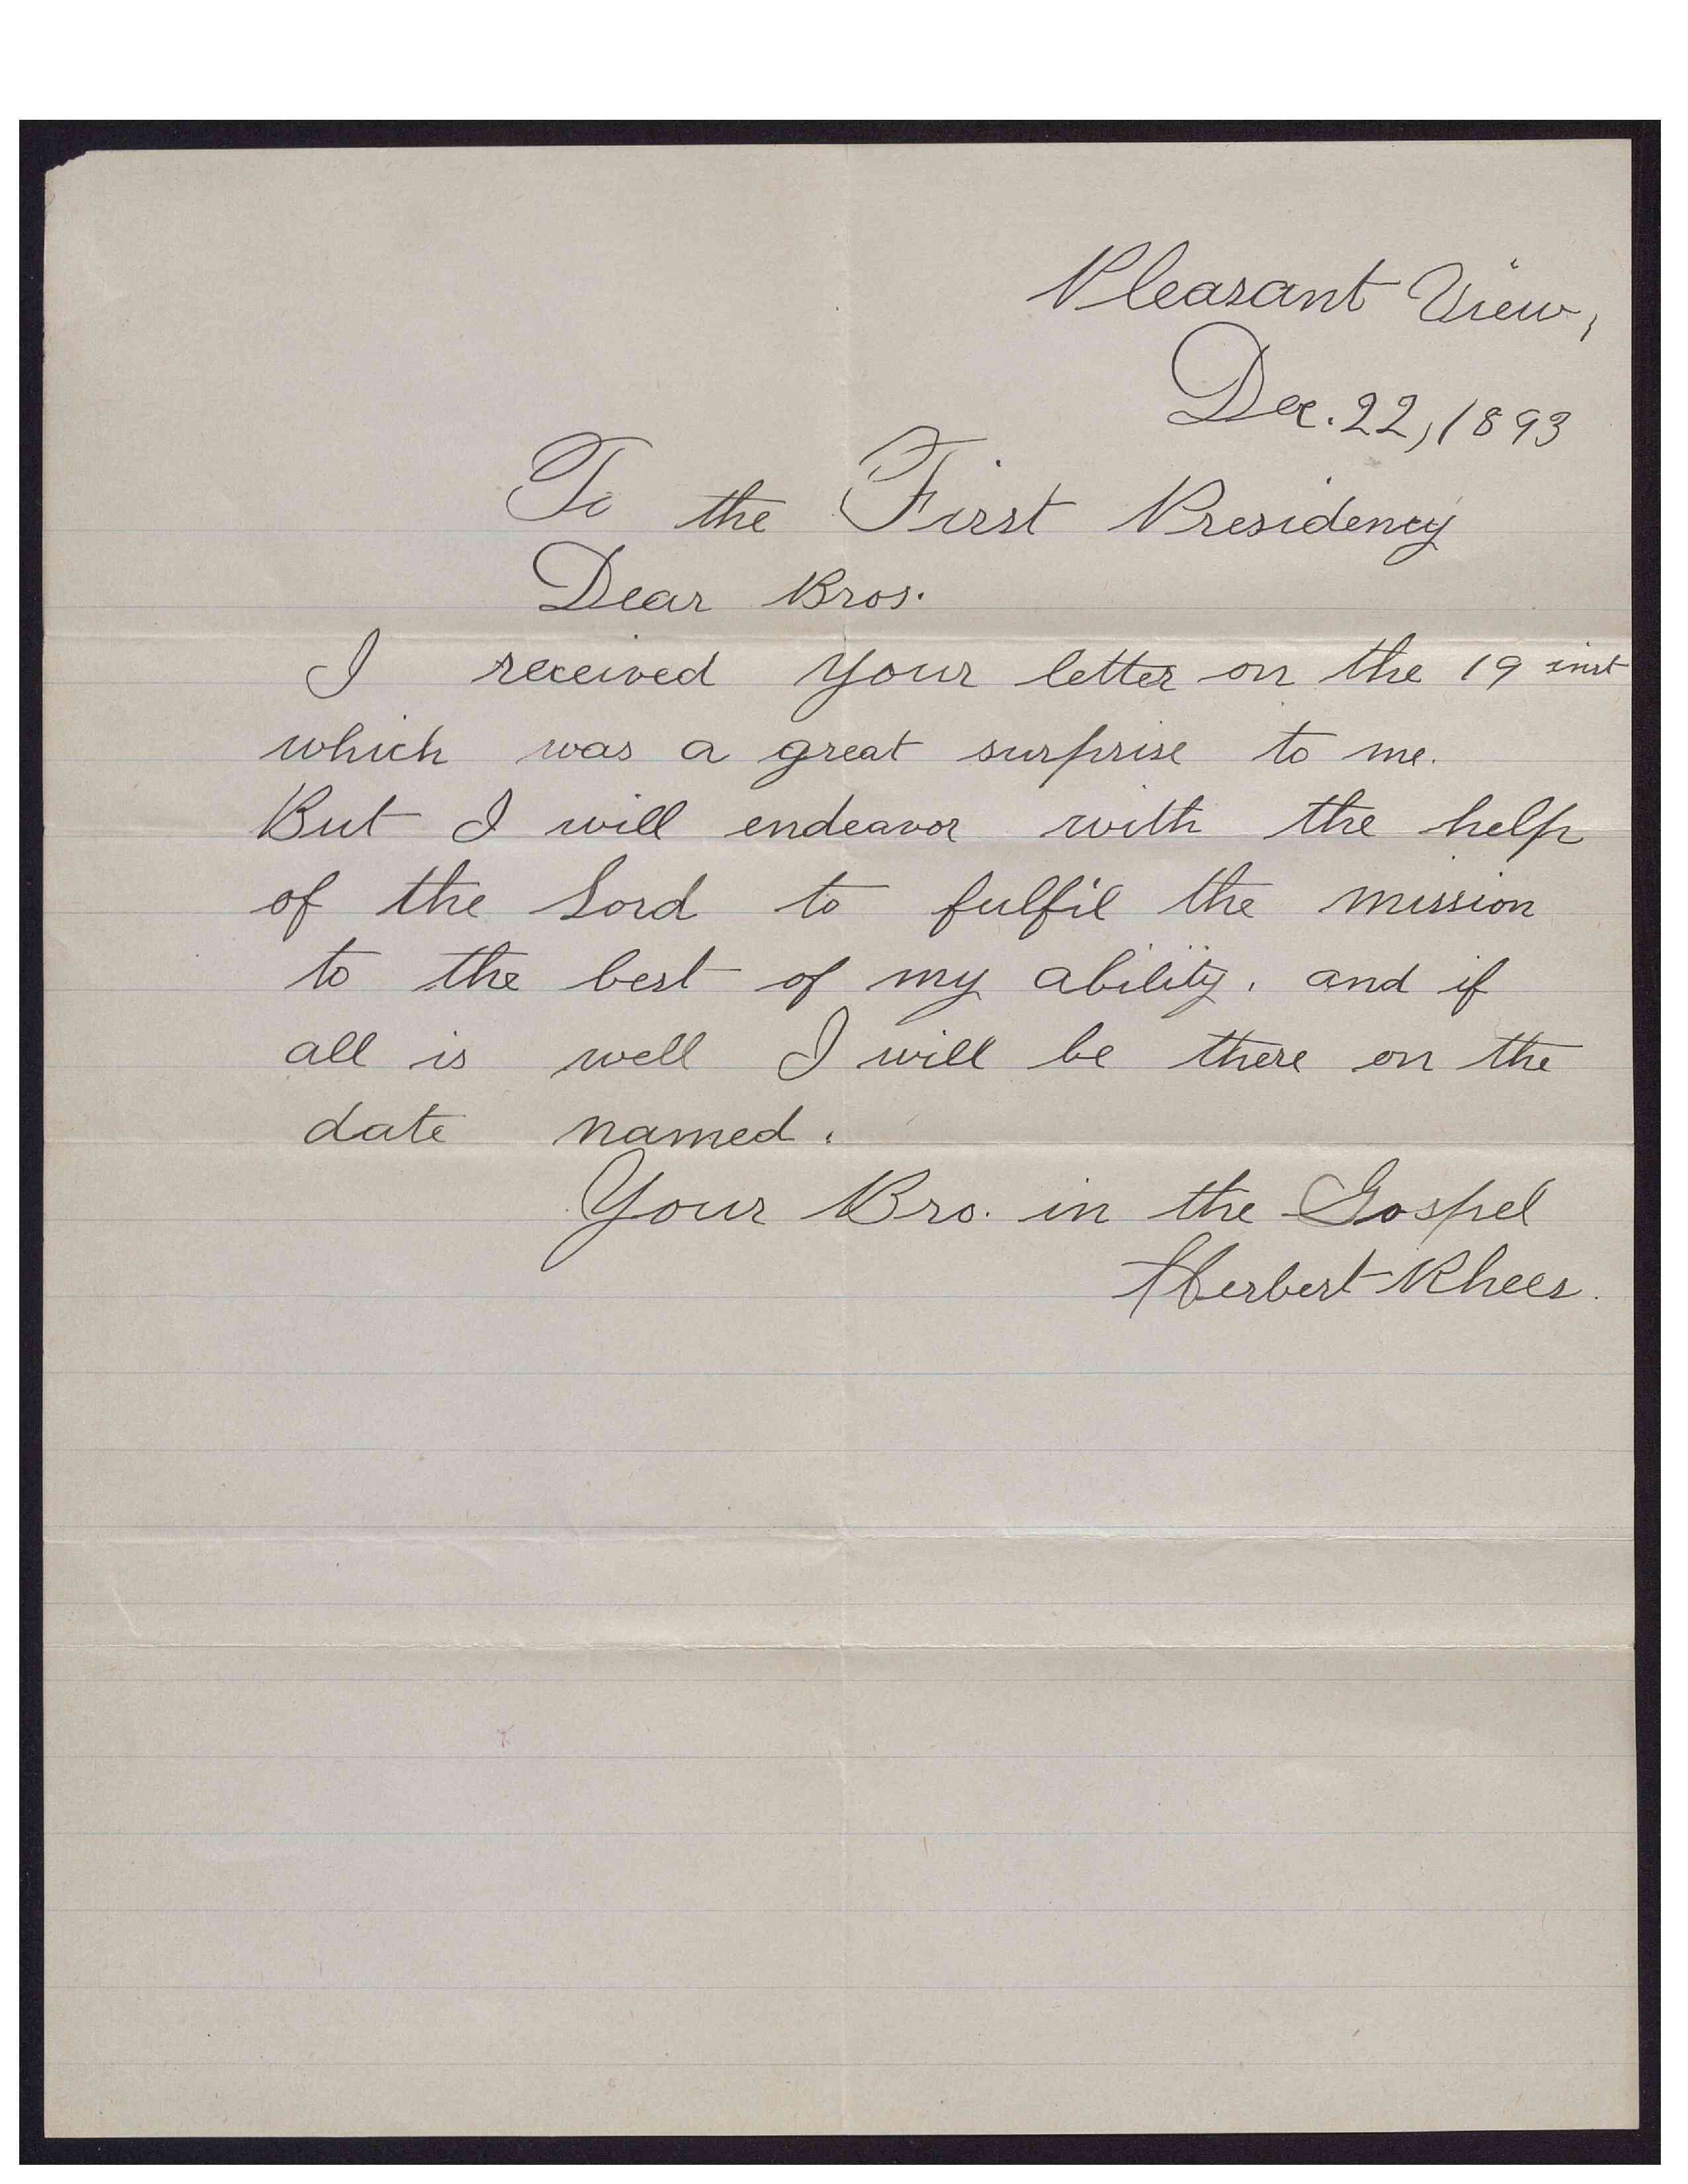 Pleasant View,
Dec. 22, 1893
To the First Presidency
Dear Bros.
I received your letter on the 19 inst
which was a great surprise to me.
But I will endeavor with the help
of the Lord to fulfil the mission
to the best of my ability. and if
all is well I will be there on the
date named.
Your Bro. in the Gospel
Herbert Rhees.